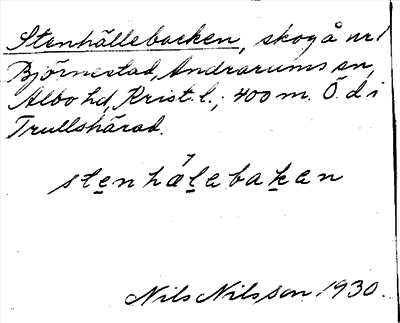 Stenhällebacken, skog å nr 1
Björnestad, Andrarums sn,
Albo hd, Krist. l.; 400 m. Ö. d i
Trullshärad.
stenhälebaken
Nils Nilsson 1930.